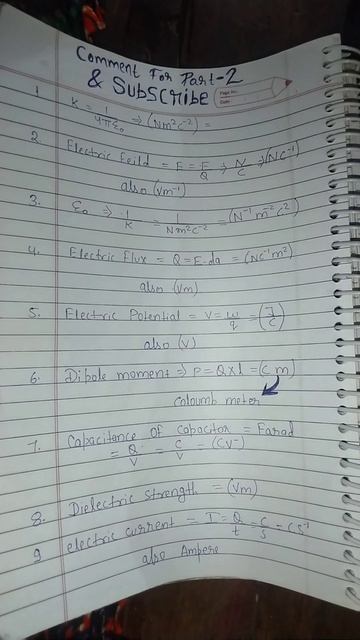 Comment For Part-2
& Subscribe
Page No.
Date
1 K = 1/4πε₀ ⇒ (Nm²c⁻²) =
2 Electric Feild = E = F/Q ⇒ N/C ⇒ (NC⁻¹)
also (Vm⁻¹)
3. ε₀ ⇒ 1/K = 1/Nm²c⁻² = (N⁻¹m⁻²c²)
4. Electric Flux = Q = E.da = (NC⁻¹m²)
also (Vm)
5. Electric Potential = V = w/q = (J/C)
also (V)
6. Dipole moment ⇒ P = Q×l = (C m)
coloumb meter
7. Capacitance of capacitor = Farad
= Q/V = C/V = (CV⁻)
8. Dielectric strength = (Vm)
9 electric current = I = Q/t = C/S = CS⁻¹
also Ampere